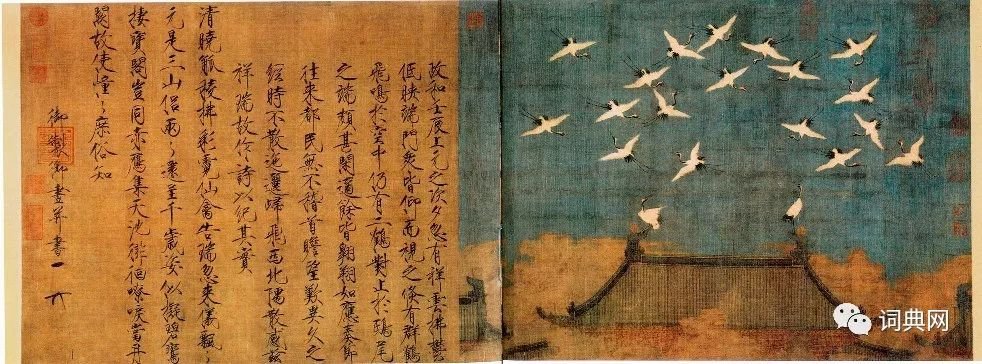 政和壬辰上元之次夕忽有祥雲拂鬱
低映端門衆皆仰而視之倏有群鶴
飛鳴於空中仍有二鶴對止於鴟尾
之端頗甚閒適餘皆翱翔如應奏節
往來都民無不稽首瞻望歎異久之
經時不散迤邐歸飛西北隅散感茲
祥瑞故作詩以紀其實
清曉觚稜拂彩霓仙禽告瑞忽來儀飄々
元是三山侶兩々還呈千歲姿似擬碧鸞
棲寶閣豈同赤鴈集天池徘徊嘹唳當丹
闕故使憧々庶俗知
御製御畫并書
词典网